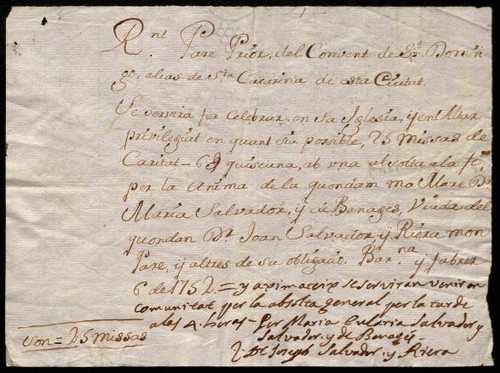 Rnt Pare Prior, del Convent de St Domin-
go, alias de Sta Catarina de esta Ciutat.
Se servira fer celebrar en sa Iglesia, y en Altar
privilegiat en quant sia possible, 25 missas de
Caritat - 6 quiscuna, ab una absolta a la fi
per la Anima de la quondam ma Mare Da
Maria Salvador, y de Benages, Viuda del
quondam Dr Joan Salvador, y Riera mon
Pare, y altres de sa obligacio. Barna y fabrer
6 de 1752 = y aximateix se serviran venir en
comunitat per la absolta general per la tarde
a les 4 horas - Per Maria Eularia Salvador y
Salvador, y de Benages -
Dr Joseph Salvador, y Riera
son = 25 missas